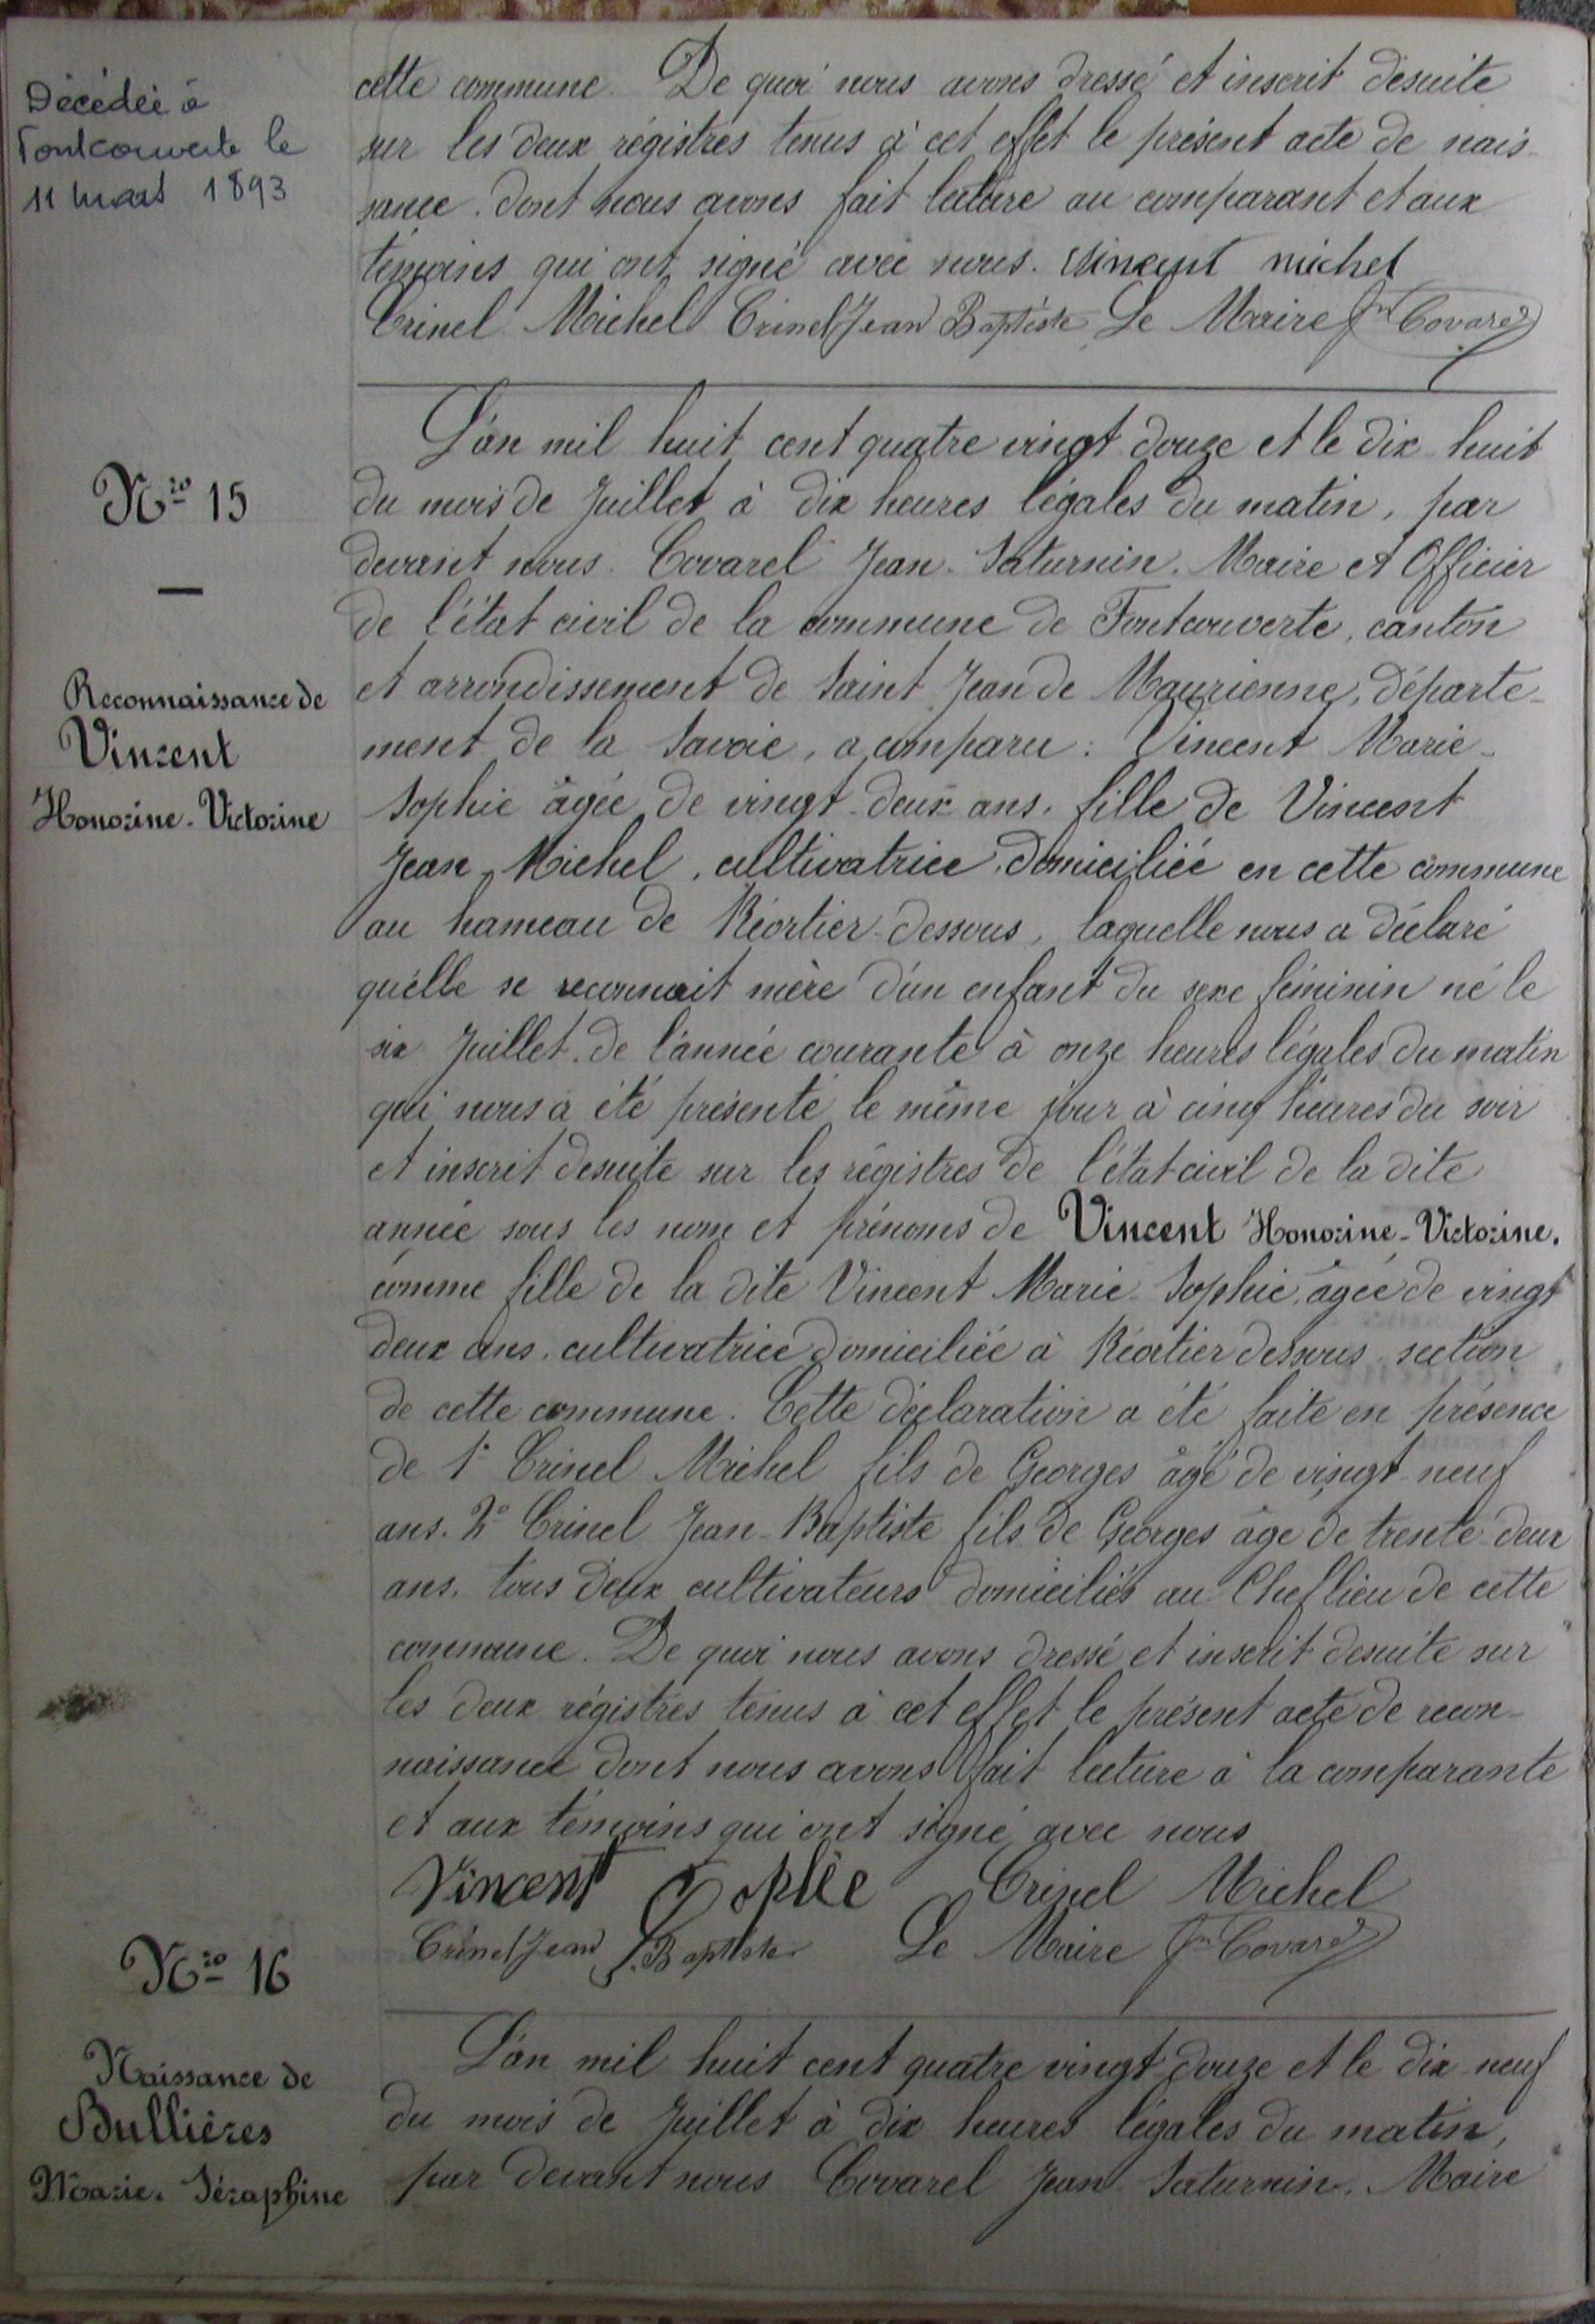 Décédée à
Fontcouverte le
11 mars 1893
cette commune. De quoi nous avons dressé et inscrit desuite
sur les deux régistres tenus à cet effet le présent acte de nais-
sance. dont nous avons fait lecture au comparant et aux
témoins qui ont signé avec nous. Vincent michel
Crinel Michel Crinel Jean Baptiste Le Maire Jn Covarel
Nro 15
—
Reconnaissance de
Vincent
Honorine-Victorine
L'an mil huit cent quatre vingt douze et le dix-huit
du mois de Juillet à dix heures légales du matin, par
devant nous. Covarel Jean-Saturnin. Maire et Officier
de l'état civil de la commune de Fontcouverte, canton
et arrondissement de Saint Jean de Maurienne, départe-
ment de la Savoie, a comparu: Vincent Marie-
Sophie âgée de vingt-deux ans. fille de Vincent
Jean-Michel, cultivatrice, domiciliée en cette commune
au hameau de Réortier-dessous, laquelle nous a déclaré
qu'elle se reconnait mère d'un enfant du sexe féminin né le
six Juillet de l'année courante à onze heures légales du matin
qui nous a été présenté le même jour à cinq heures du soir
et inscrit desuite sur les régistres de l'état civil de la dite
année sous les nom et prénoms de Vincent Honorine-Victorine.
comme fille de la dite Vincent Marie-Sophie, âgée de vingt
deux ans. cultivatrice domiciliée à Réortier dessous section
de cette commune. Cette déclaration a été faite en présence
de 1° Crinel Michel fils de Georges âgé de vingt-neuf
ans. 2° Crinel Jean-Baptiste fils de Georges âgé de trente-deux
ans. tous deux cultivateurs domiciliés au Cheflieu de cette
commune. De quoi nous avons dressé et inscrit desuite sur
les deux régistres tenus à cet effet le présent acte de recon-
naissance dont nous avons fait lecture à la comparante
et aux témoins qui ont signé avec nous
Vincent Sophie Crinel Michel
Crinel Jean Baptiste Le Maire Jn Covarel
Nro 16
Naissance de
Bullières
Marie-Séraphine
L'an mil huit cent quatre vingt douze et le dix neuf
du mois de Juillet à dix heures légales du matin,
par devant nous Covarel Jean-Saturnin. Maire